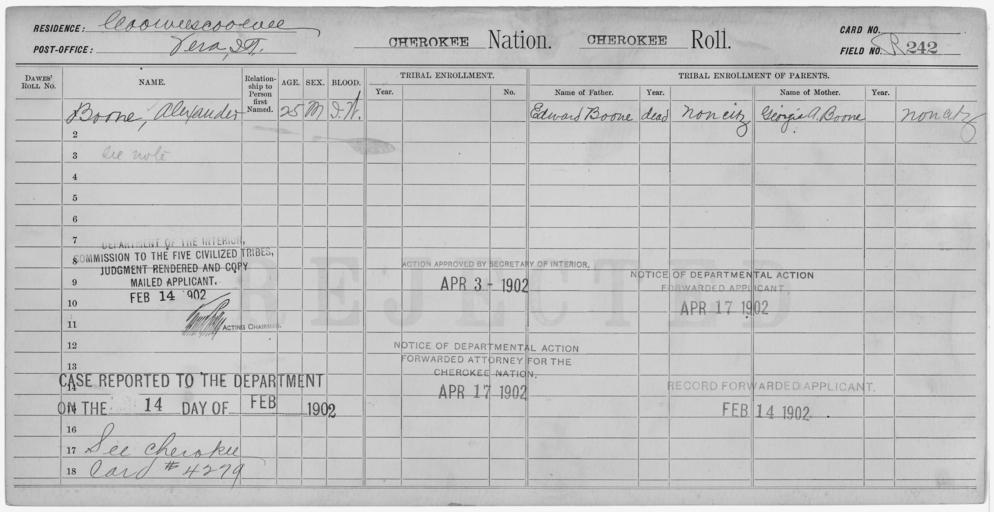 RESIDENCE: Coowеescoowee
POST-OFFICE: Vera, I.T.
CHEROKEE Nation. CHEROKEE Roll.
CARD NO.
FIELD NO. R 242
DAWES' ROLL NO. NAME. Relationship to Person first Named. AGE. SEX. BLOOD. TRIBAL ENROLLMENT. TRIBAL ENROLLMENT OF PARENTS.
Year. No. Name of Father. Year. Name of Mother. Year.
1 Boone, Alexander 25 M I.W. Edward Boone dead noncitz Georgia A. Boone noncitz
2
3 See note
4
5
6
7
8
9
10
11
12
13
14
16
17 See Cherokee
18 Card # 4279
DEPARTMENT OF THE INTERIOR,
COMMISSION TO THE FIVE CIVILIZED TRIBES,
JUDGMENT RENDERED AND COPY
MAILED APPLICANT.
FEB 14 1902
ACTING CHAIRMAN.
REJECTED
ACTION APPROVED BY SECRETARY OF INTERIOR.
APR 3- 1902
NOTICE OF DEPARTMENTAL ACTION
FORWARDED APPLICANT
APR 17 1902
NOTICE OF DEPARTMENTAL ACTION
FORWARDED ATTORNEY FOR THE
CHEROKEE NATION.
APR 17 1902
CASE REPORTED TO THE DEPARTMENT
ON THE 14 DAY OF FEB 1902
RECORD FORWARDED APPLICANT.
FEB 14 1902